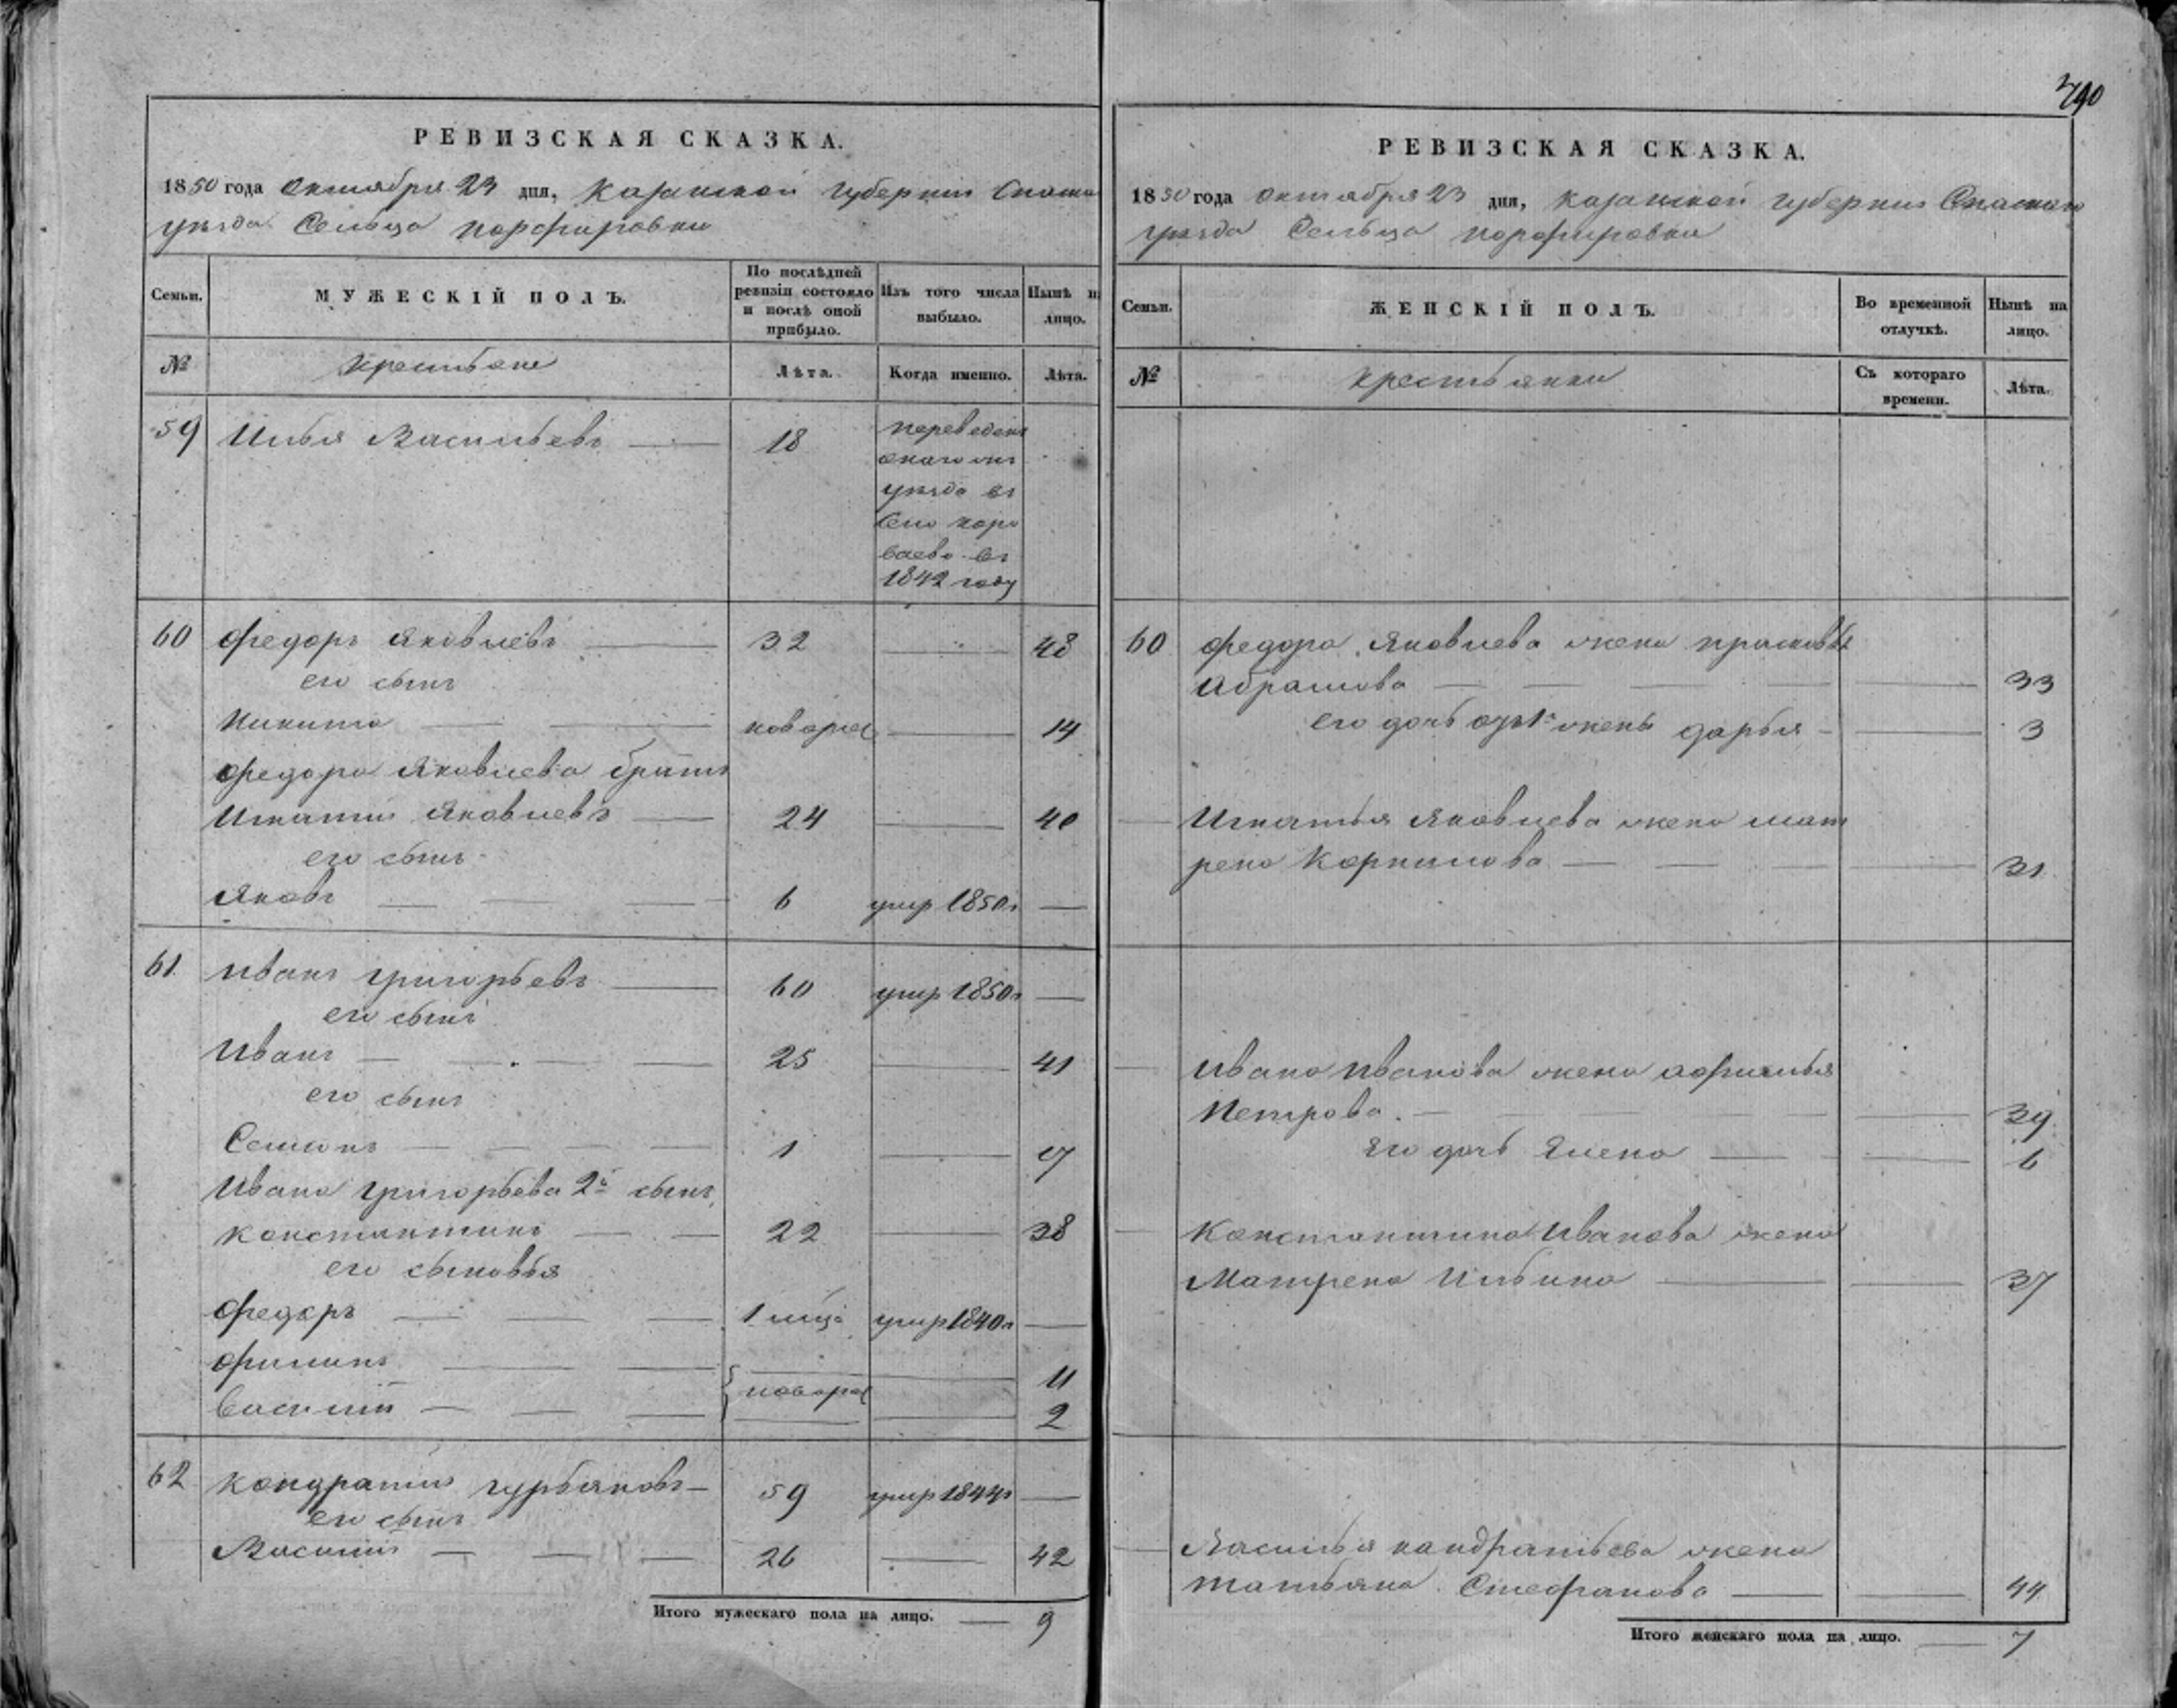 РЕВИЗСКАЯ СКАЗКА.
1850 года Октября 23 дня, Казанской губернiи Спаска
уѣзда Сельца Порфировки
Семьи.
МУЖЕСКІЙ ПОЛЪ.
По послѣдней ревизіи состояло и послѣ оной прибыло.
Изъ того числа выбыло.
Нынѣ н лицо.
№
Крестьяне
Лѣта.
Когда именно.
Лѣта.
59 Илья Васильевъ 18
переведенъ
уѣзда въ
Село Коро
ваево въ
1842 году
60 Федоръ Яковлевъ 32 48
его сынъ
Никита новорож 14
Федора Яковлева братъ
Игнатiй Яковлевъ 24 40
его сынъ
Яковъ 6 умер 1850г
61 Иванъ Григорьевъ 60 умер 1850г
его сынъ
Иванъ 25 41
его сынъ
Семионъ 1 17
Ивана Григорьева 2й сынъ
Константинъ 22 38
его сыновья
Федоръ 1 мца умер 1840г
Филипъ 11
новорож
Василiй 2
62 Кондратiй Гурьяновъ 59 умер 1844г
его сынъ
Василiй 26 42
Итого мужескаго пола на лицо. 9
РЕВИЗСКАЯ СКАЗКА.
1850 года Октября 23 дня, Казанской губернiи Спаскаго
уѣзда Сельца Порфировки
Семьи.
ЖЕНСКІЙ ПОЛЪ.
Во временной отлучкѣ.
Нынѣ на лицо.
№
Крестьянки
Съ котораго времени.
Лѣта.
60 Федора Яковлева жена Прасковья
Абрамова 33
его дочь жены Дарья 3
Игнатья Яковлева жена Мат
рена Корнилова 31
Ивана Иванова жена
Петрова 39
Его дочь Елена 6
Константина Иванова жена
Матрена Ильина 37
Василья Кандратьева жена
Татьяна Стефанова 44
Итого женскаго пола на лицо. 7